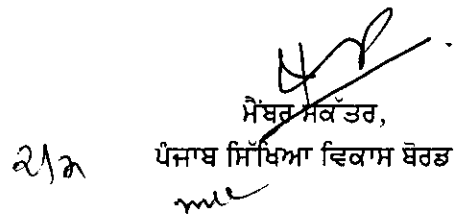 ਮੈਂਬਰ ਸਕੱਤਰ,
ਪੰਜਾਬ ਸਿੱਖਿਆ ਵਿਕਾਸ ਬੋਰਡ